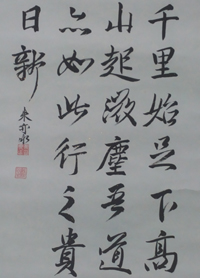 千里始足下高
山起微塵吾道
亦如此行之貴
日新